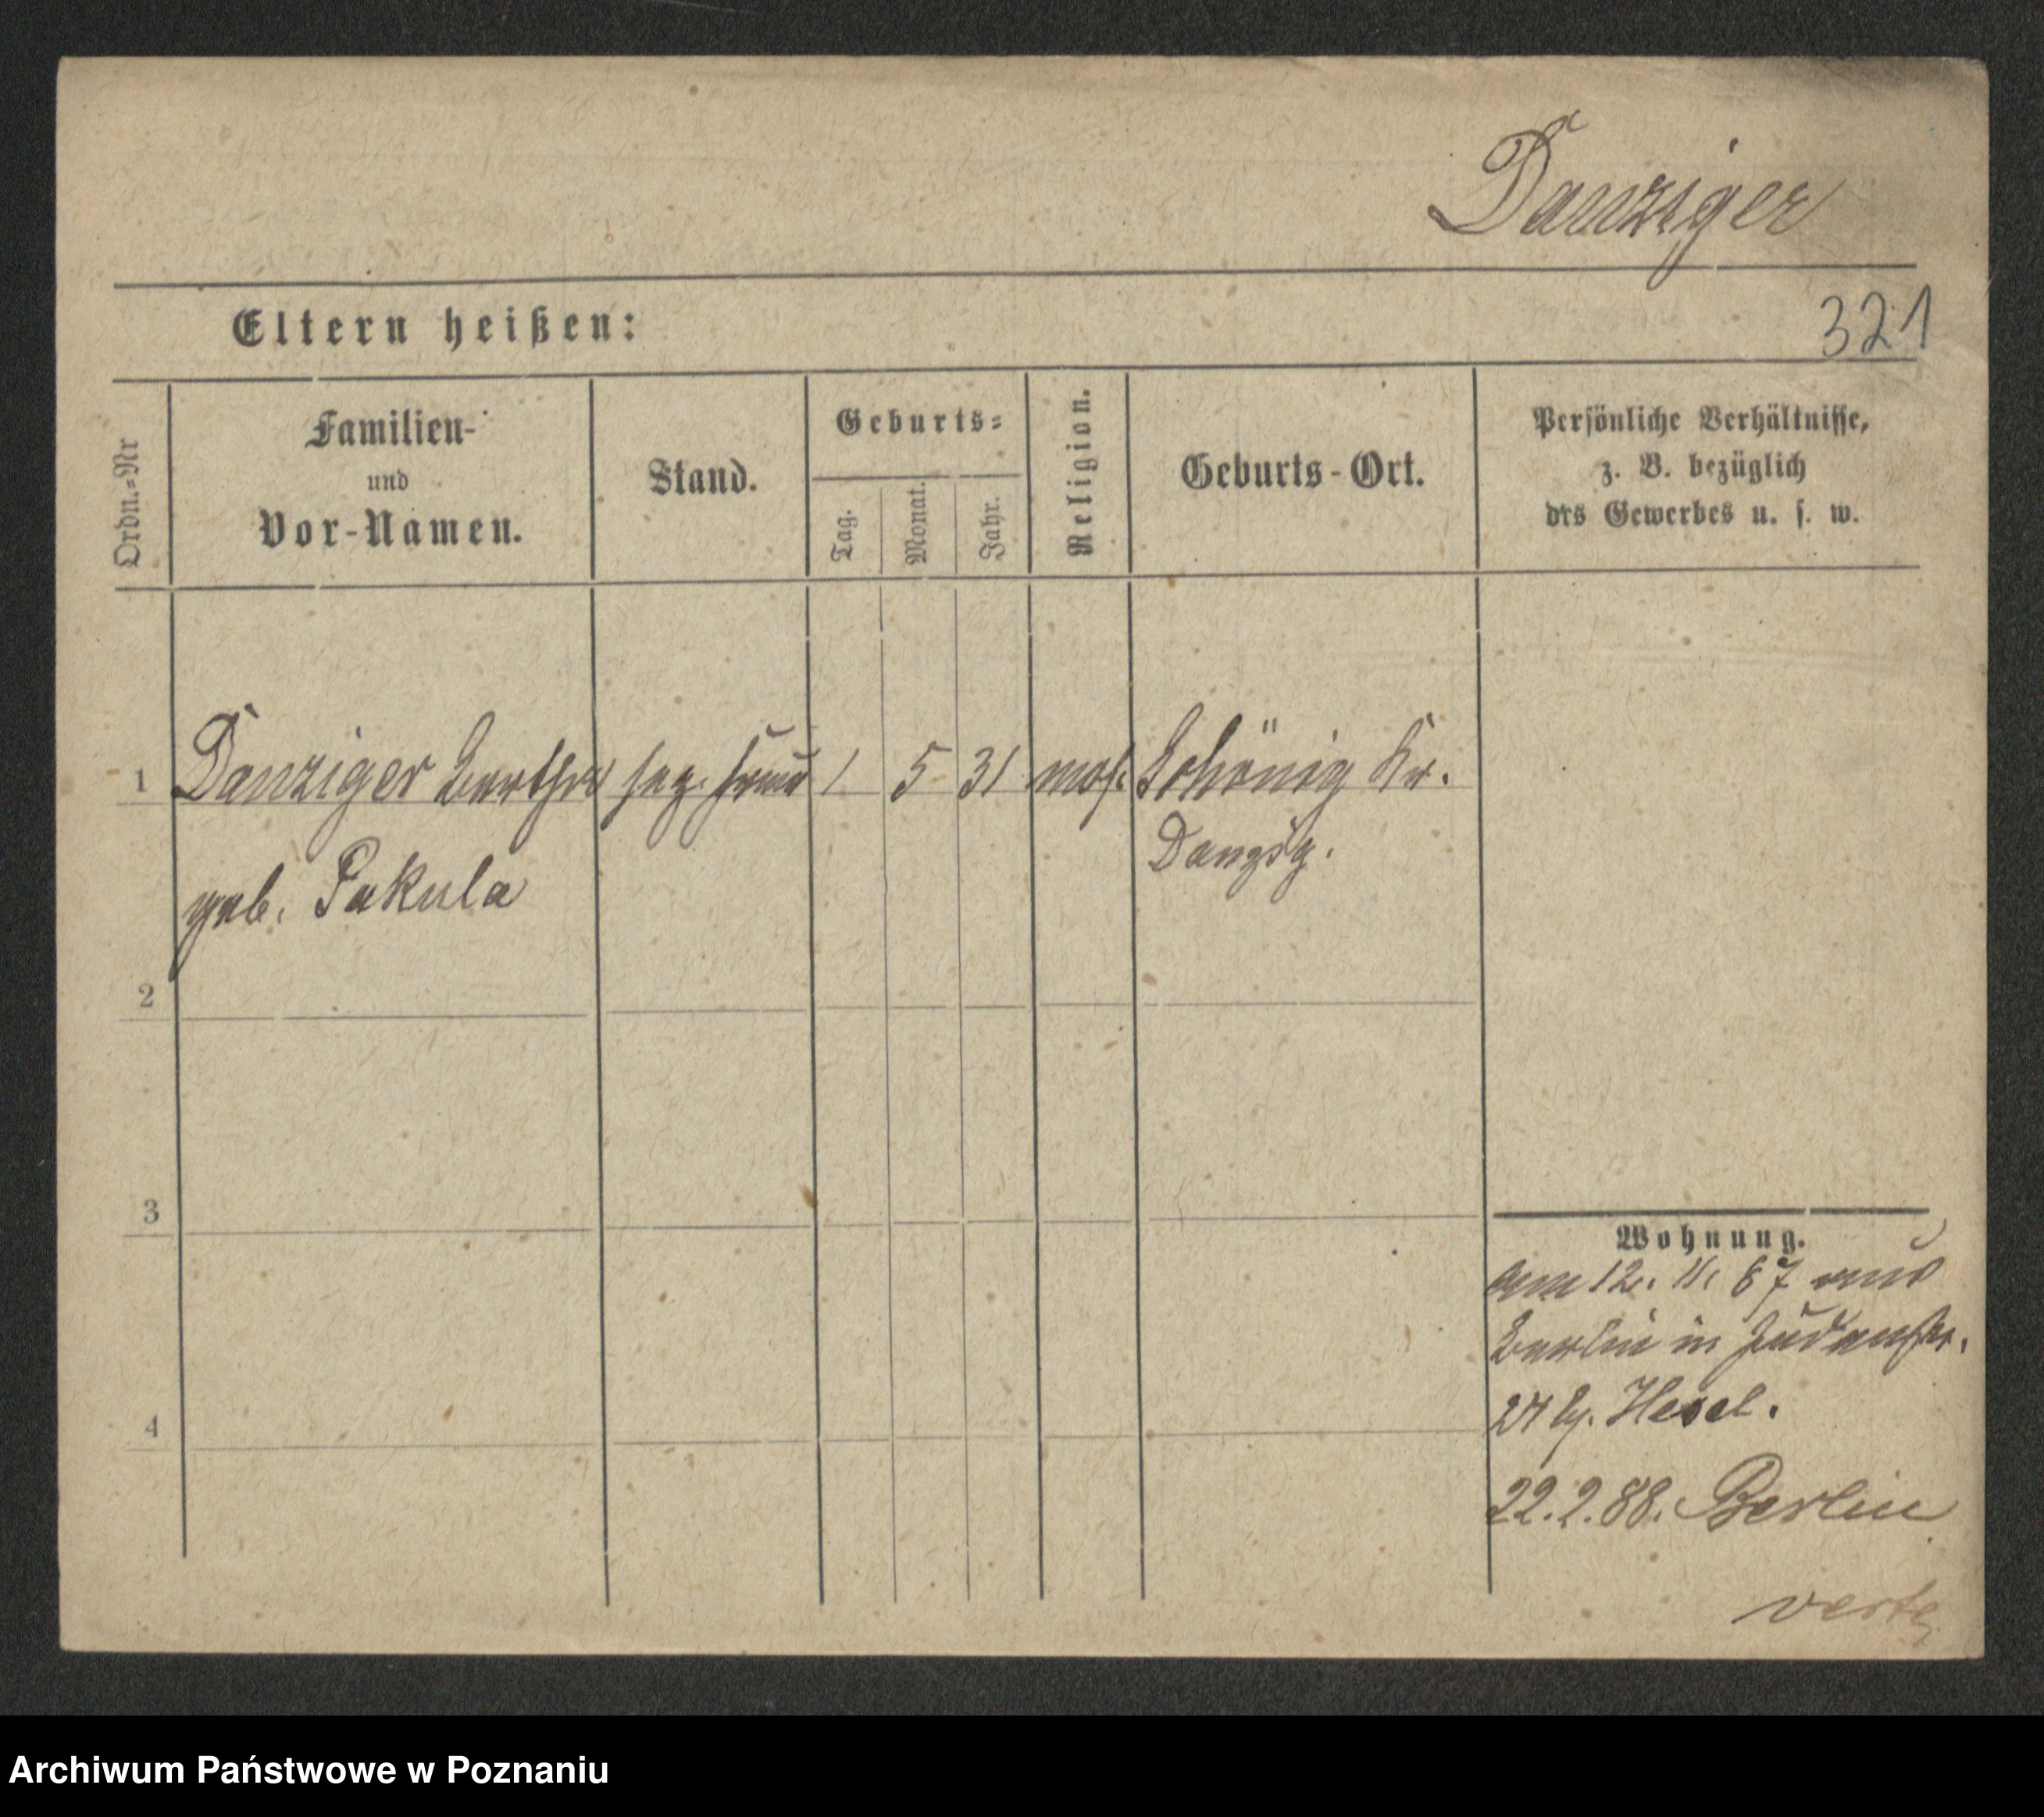 Danziger
Eltern heißen:
321
Ordn.=Nr
Familien-
und
Vor-Namen.
Stand.
Geburts=
Tag.
Monat.
Jahr.
Religion.
Geburts-Ort.
Persönliche Verhältnisse,
z. B. bezüglich
des Gewerbes u. s. w.
1 Danziger Bertha 1 5 31 mos. Schönig Kr.
Danzig.
geb. Pakula
2
3
4
Wohnung.
am 12. 11. 87 aus
Berlin in Judenstr.
27 b/. Hesel.
22.2.88. Berlin
verte
Archiwum Państwowe w Poznaniu